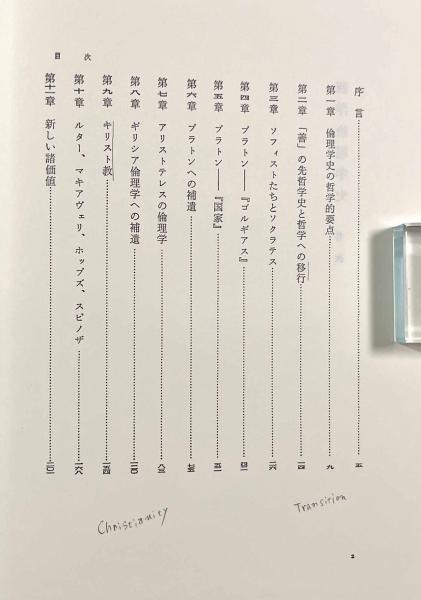 目次
序言 五
第一章 倫理学史の哲学的要点 九
第二章 「善」の先哲学史と哲学への移行 一四
第三章 ソフィストたちとソクラテス 二六
第四章 プラトン——『ゴルギアス』 四一
第五章 プラトン——『国家』 五二
第六章 プラトンへの補遺
第七章 アリストテレスの倫理学 八三
第八章 ギリシア倫理学への補遺
第九章 キリスト教 一五四
第十章 ルター、マキアヴェリ、ホッブズ、スピノザ 一六八
第十一章 新しい諸価値 二〇一
Transition
Christianity
2